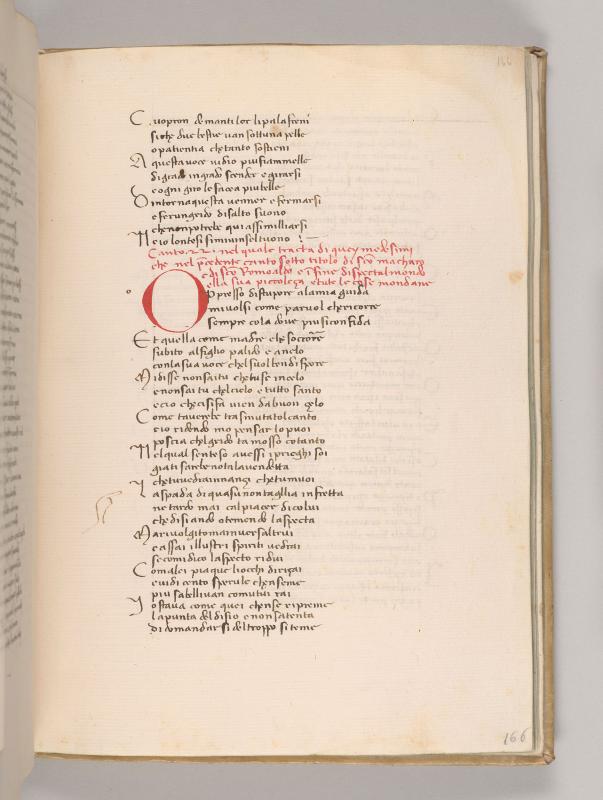 166
Cuopron demanti lor lipalafreni
siche due bestie uan sottuna pelle
o patientia che tanto sostieni
A questa uoce uidio piu fiammelle
di grado ingrado scender egirarsi
e ogni giro le facea piu belle
Dintorna questa uenner e fermarsi
e fer ungrido di salto suono
che non potrebe qui assimilliarsi
Ne io lontesi simi uinsel tuono
Canto .22. nel quale tracta di quey medesimi
che nel precedente canto sotto titolo di sco machario
e di sco Romoaldo e i fine dispecta l mondo
ella sua piccoleza e tute le cose mondane
Oppresso di stupore alamia guida
miuolsi come paruol che ricorre
sempre cola doue piu si confida
Et quella come madre che soccorre
subito al figlio palido e anelo
con la sua uoce chel suol ben disporre
Midisse non sai tu che tu se incelo
e non sai tu chel cielo e tutto santo
e cio che ci si fa uien da buon zelo
Come tauerebe trasmutato l canto
e io ridendo mo pensar lo puoi
poscia chel grido ta mosso cotanto
Nel qual senteso auessi i prieghi soi
gia ti sarebe nota la uendetta
che tu uedrai innanzi che tu muoi
La spada di quasu non taglia in fretta
ne tardo mai cal piacer di colui
che disiando o temendo laspecta
Mariuolgiti omai inuers altrui
e assai illustri spiriti uedrai
se com dico laspecto ridui
Coma lei piaque li occhi dirizai
e uidi cento sperule chenseme
piu sabelliuan con mutui rai
Io staua come quei chense ripreme
la punta del disio e non satenta
di domandar si del troppo si teme
166